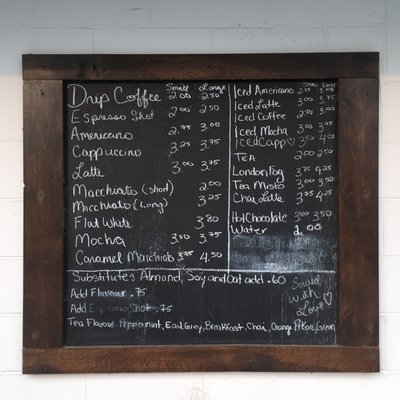 Small Large
Drip Coffee 2.00 2.50
Espresso Shot 2.00 2.50
Americano 2.75 3.00
Cappuccino 3.25 3.75
Latte 3.00 3.50
Macchiato (short) 2.00
Macchiato (long) 3.25
Flat White 3.80
Mocha 3.50 3.75
Caramel Macchiato 3.75 4.50
Small Large
Iced Americano
Iced Latte 3.00 3.75
Iced Coffee 2.50
Iced Mocha 3.00
Iced Capp 3.00 4.50
Tea 2.00 2.50
London Fog 3.75 4.25
Tea Misto 3.00
Chai Latte 3.75 4.25
Hot Chocolate 3.00 3.50
Water
Substitutes Almond, Soy and Oat add .60
Add Flavour .75
Add Espresso Shot .75
Tea Flavour Peppermint, Earl Grey, Breakfast, Chai, Orange Pekoe, Green
Served
with
Love